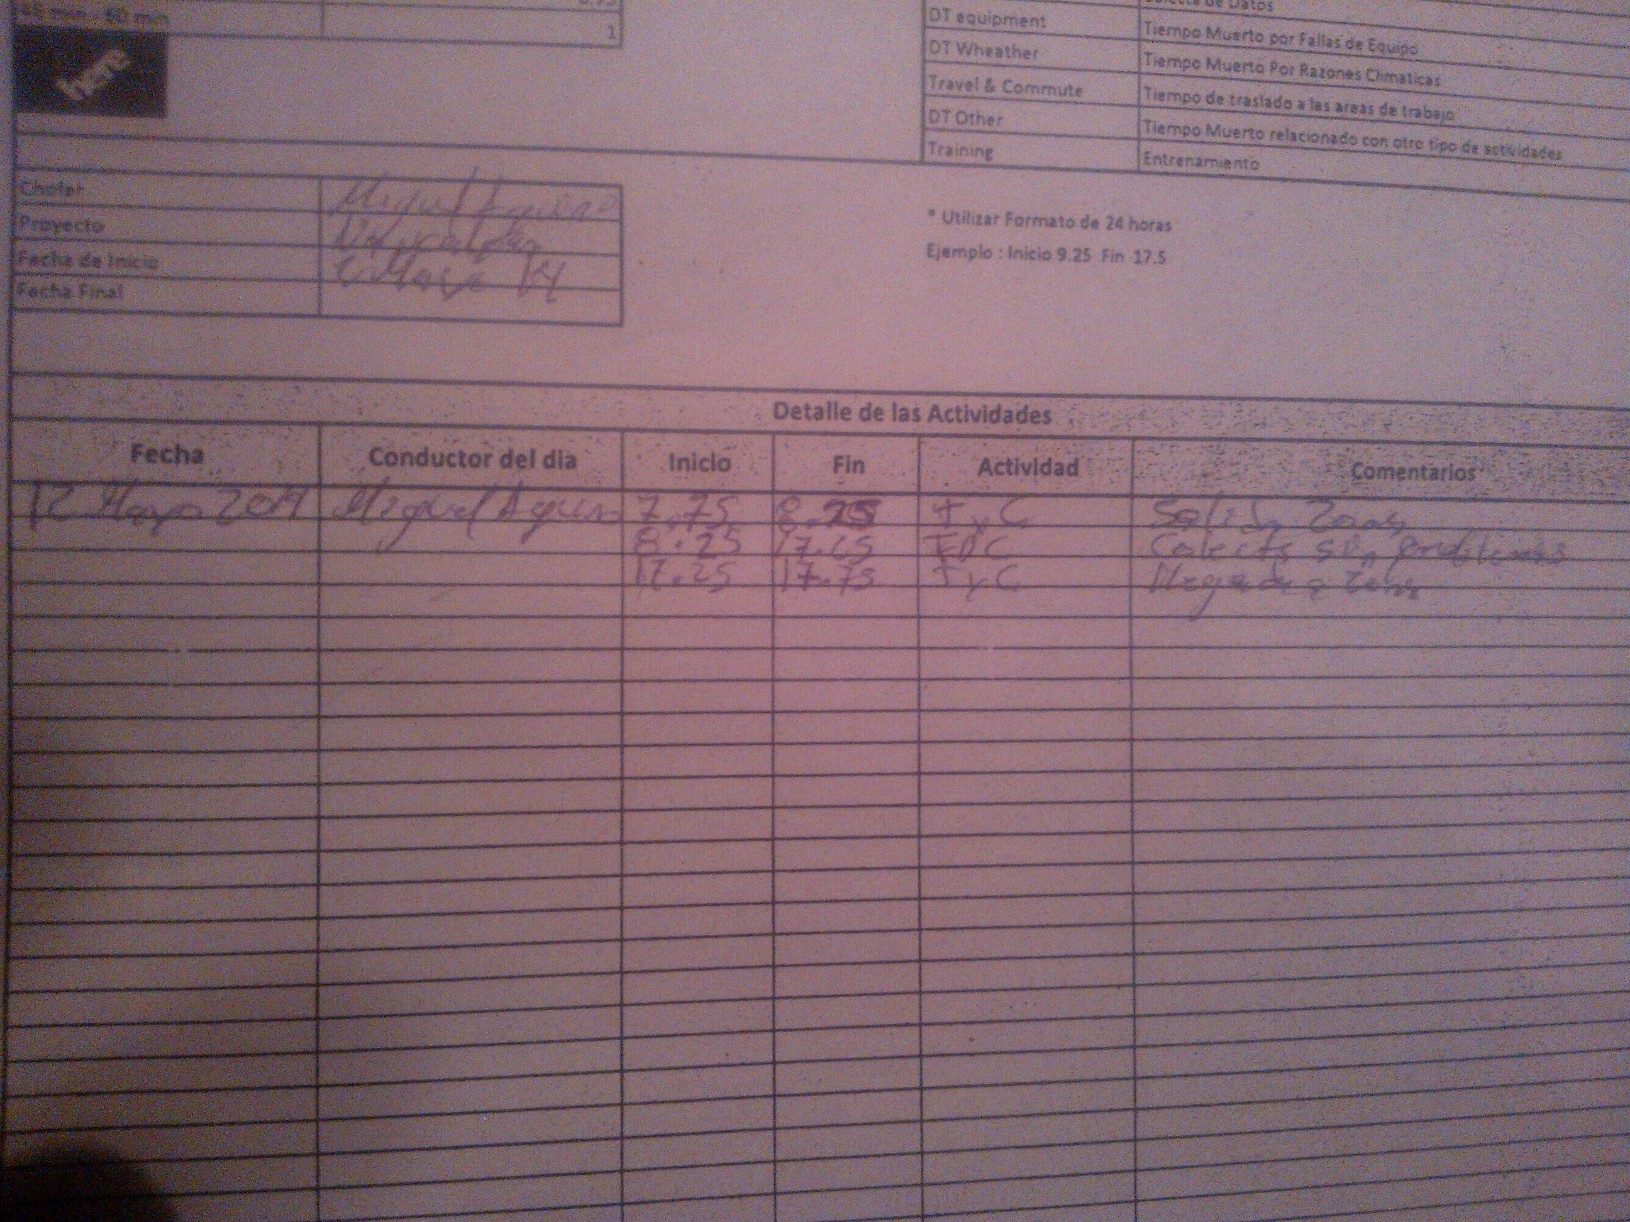 45 min - 60 min 1
here
DT equipment Tiempo Muerto por Fallas de Equipo
DT Wheather Tiempo Muerto Por Razones Climaticas
Travel & Commute Tiempo de traslado a las areas de trabajo
DT Other Tiempo Muerto relacionado con otro tipo de actividades
Training Entrenamiento
Chofer Miguel
Proyecto
Fecha de Inicio
Fecha Final
* Utilizar Formato de 24 horas
Ejemplo : Inicio 9.25 Fin 17.5
Detalle de las Actividades
Fecha Conductor del dia Inicio Fin Actividad Comentarios
12 Mayo Miguel 7.75 8.25 TyC Salida
8.25 17.25 Colecta sin problemas
17.25 17.75 TyC